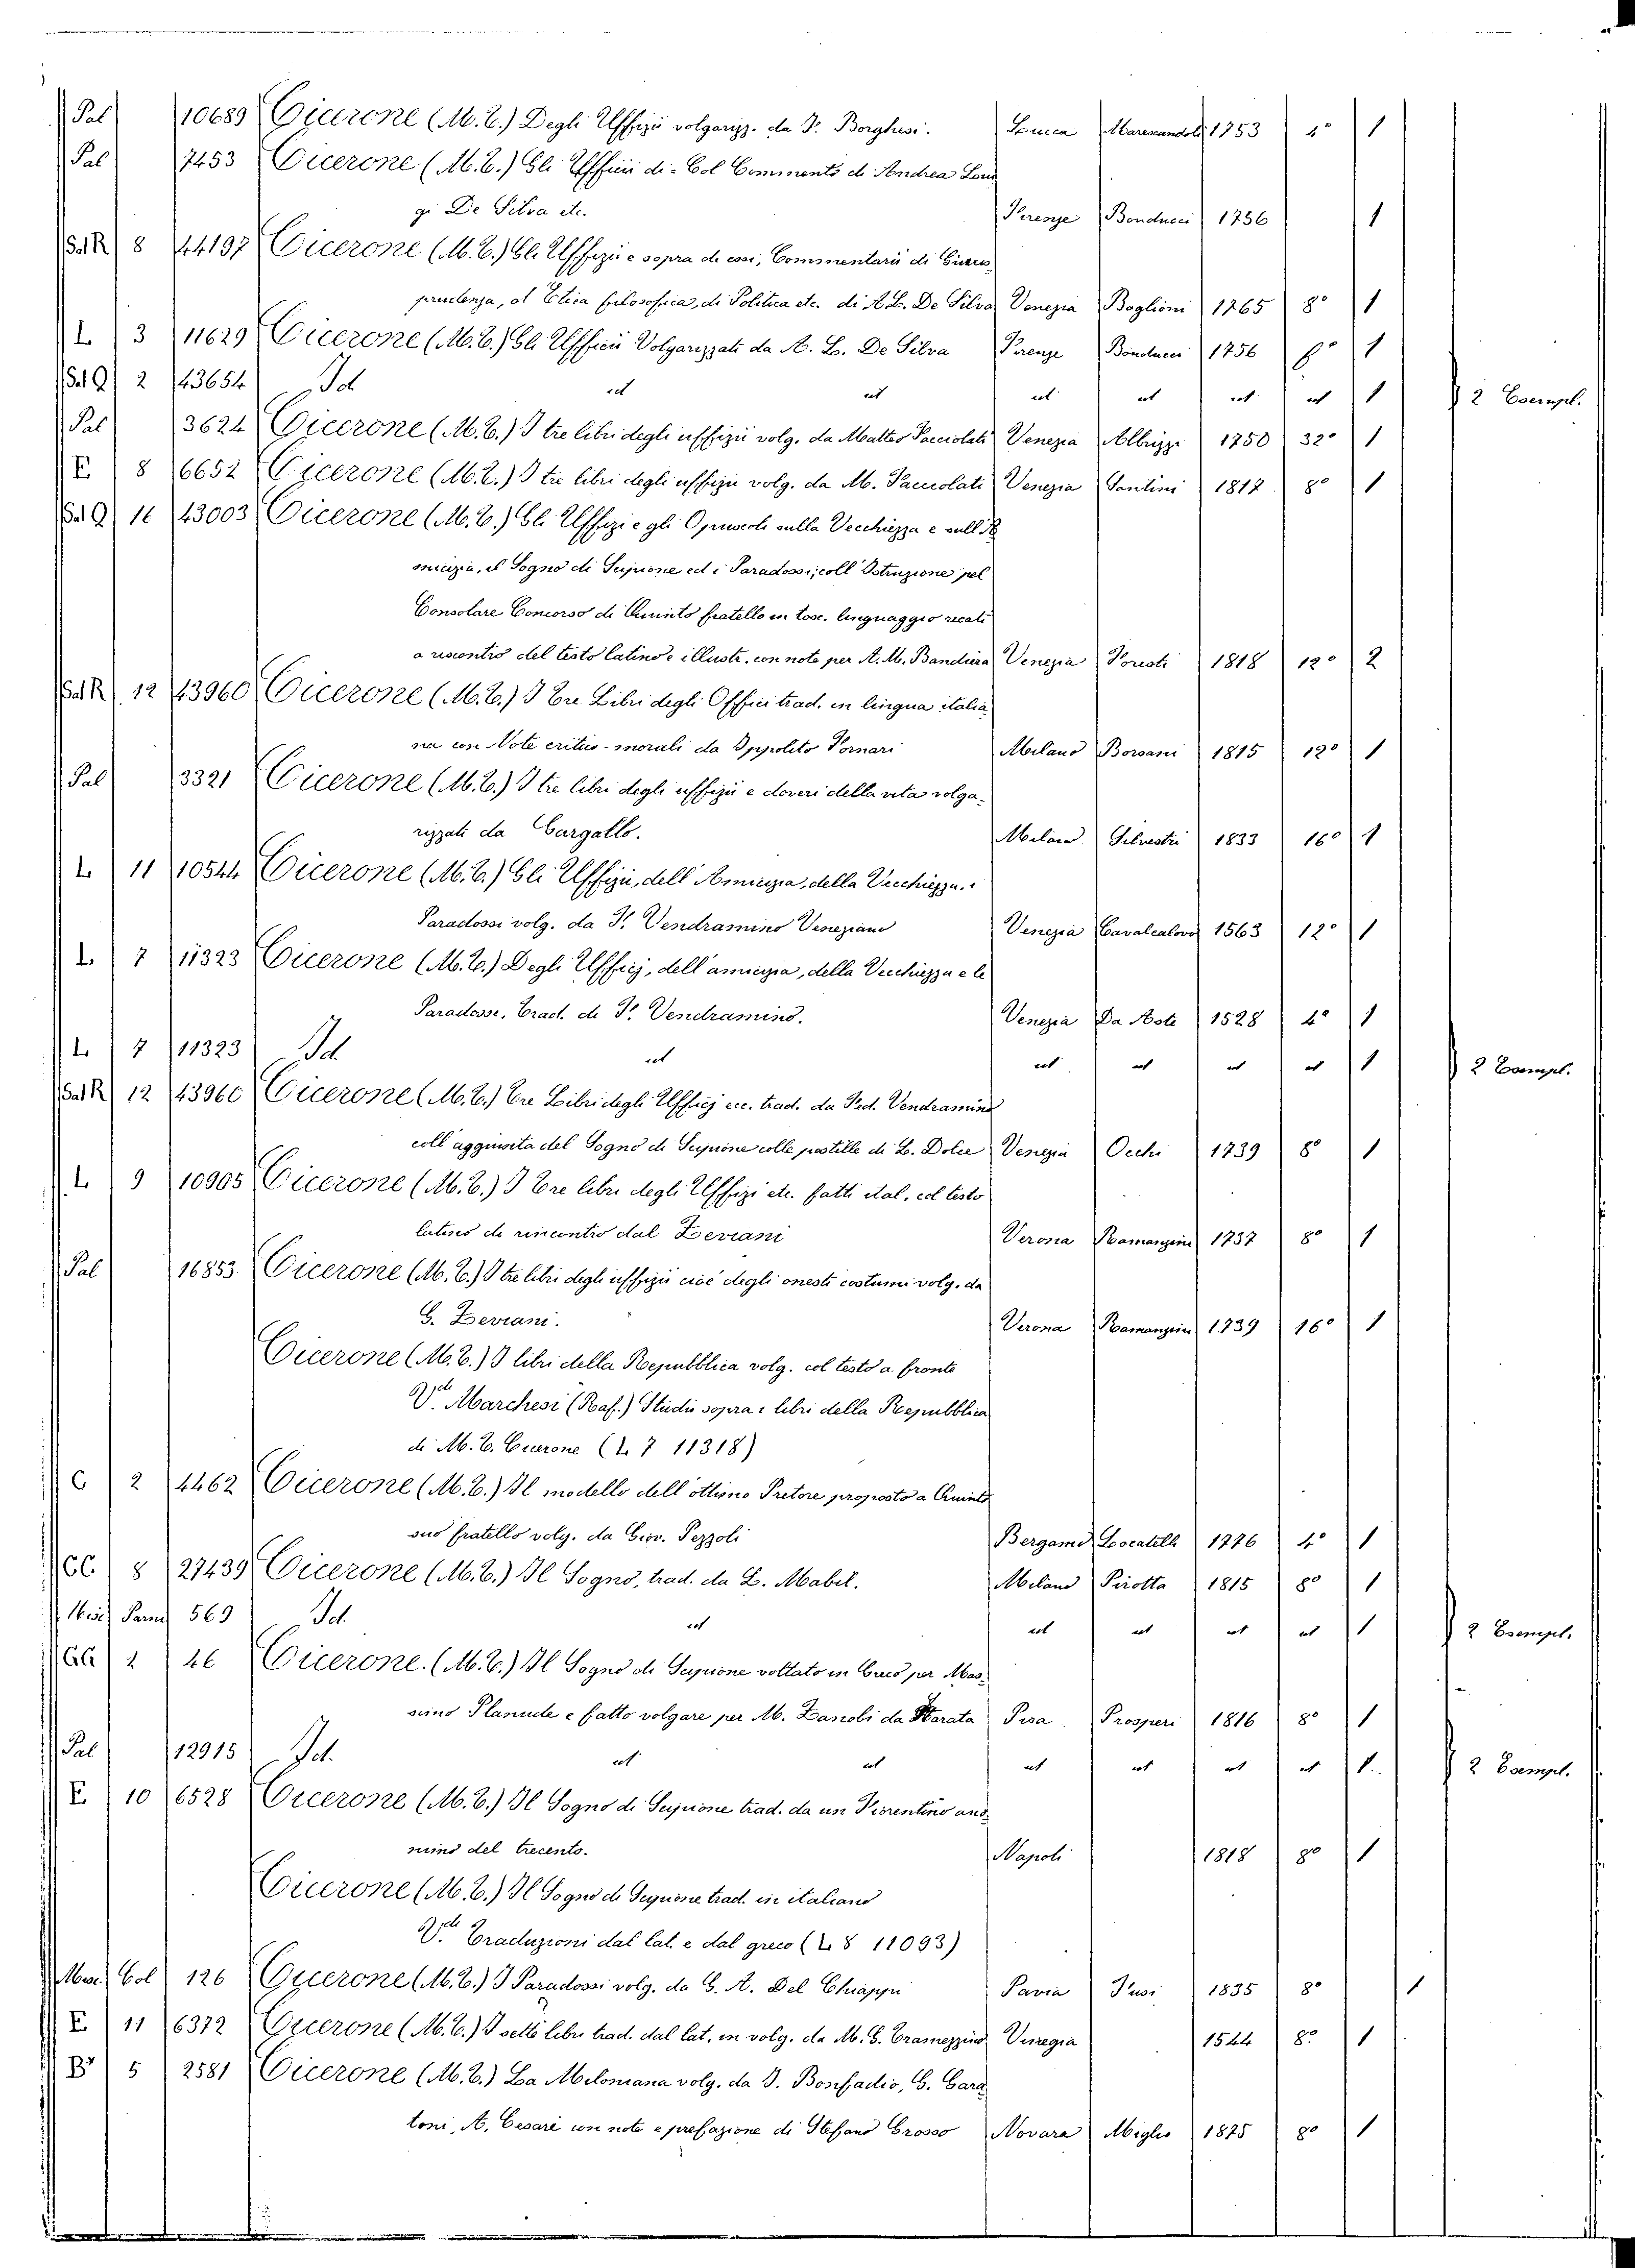 Pal 10689 Cicerone (M. T.) Degli Uffizii volgarizz. da F. Borghesi. Lucca Marescandoli 1753 4° 1
Pal 7453 Cicerone (M. T.) Gli Ufficii di - Col Commento di Andrea Lui
gi De Silva etc. Firenze Bonducci 1756 1
Sal R 8 44197 Cicerone (M. T.) Gli Uffizii e sopra di essi, Commentarii di Giuris
prudenza, d'Etica filosofica, di Politica etc. di A. L. De Silva Venezia Baglioni 1765 8° 1
L 3 11629 Cicerone (M. T.) Gli Ufficii Volgarizzati da A. L. De Silva Firenze Bonducci 1756 1
Sal Q 2 43654 Id id id id id id id 1 2 Esempl.
Pal 3624 Cicerone (M. T.) I tre libri degli uffizii volg. da Matteo Facciolati Venezia Albrizzi 1750 32° 1
E 8 6652 Cicerone (M. T.) I tre libri degli uffizii volg. da M. Facciolati Venezia Santini 1817 8° 1
Sal Q 16 43003 Cicerone (M. T.) Gli Uffizi e gli Opuscoli sulla Vecchiezza e sull'A
micizia, il Sogno di Scipione ed i Paradossi; coll'Istruzione pel
Consolare Concorso di Quinto fratello in tosc. linguaggio recati
a riscontro del testo latino e illustr. con note per A. M. Bandiera Venezia Foresti 1818 12° 2
Sal R 12 43960 Cicerone (M. T.) I Tre Libri degli Offici trad. in lingua italia
na con Note critico-morali da Ippolito Fornari Milano Borsani 1815 12° 1
Pal 3321 Cicerone (M. T.) I tre libri degli uffizii e doveri della vita volga-
rizzati da Gargallo. Milano Silvestri 1833 16° 1
L 11 10544 Cicerone (M. T.) Gli Uffizii, dell'Amicizia, della Vecchiezza, i
Paradossi volg. da F. Vendramino Veneziano Venezia Cavalcalovo 1563 12° 1
L 7 11323 Cicerone (M. T.) Degli Ufficj, dell'amicizia, della Vecchiezza e le
Paradosse, Trad. di F. Vendramino. Venezia Da Aste 1528 4° 1
L 7 11323 Id id id id id id 1 2 Esempl.
Sal R 12 43960 Cicerone (M. T.) Tre Libri degli Ufficj ecc. trad. da Fed. Vendramino
coll'aggiunta del Sogno di Scipione colle postille di L. Dolce Venezia Occhi 1739 8° 1
L 9 10905 Cicerone (M. T.) I Tre libri degli Uffizi etc. fatti ital. col testo
latino di rincontro dal Zeviani Verona Ramanzini 1737 8° 1
Pal 16853 Cicerone (M. T.) I tre libri degli uffizii cioè degli onesti costumi volg. da
G. Zeviani. Verona Ramanzini 1739 16° 1
Cicerone (M. T.) I libri della Repubblica volg. col testo a fronte
V. Marchesi (Raf.) Studii sopra i libri della Repubblica
di M. T. Cicerone (L 7 11318)
C 2 4462 Cicerone (M. T.) Il modello dell'ottimo Pretore proposto a Quinto
suo fratello volg. da Giov. Pezzoli Bergamo Locatelli 1776 4° 1
CC. 8 27439 Cicerone (M. T.) Il Sogno, trad. da L. Mabil. Milano Pirotta 1815 8° 1
Misc Parm 569 Id. id id id id id 1 2 Esempl.
GG 2 46 Cicerone. (M. T.) Il Sogno di Scipione voltato in Greco per Mas-
simo Planude e fatto volgare per M. Zanobi da Strata Pisa. Prosperi 1816 8° 1
Pal 12915 Id. id id id id id id 1. 2 Esempl.
E. 10 6528 Cicerone (M. T.) Il Sogno di Scipione trad. da un Fiorentino ano
nimo del trecento. Napoli 1818 8° 1
Cicerone (M. T.) Il Sogno di Scipione trad. in italiano
V. Traduzioni dal lat. e dal greco (L 8 11093)
Misc. Col 126 Cicerone (M. T.) I Paradossi volg. da G. A. Del Chiappa Pavia Fusi 1835 8° 1
E 11 6372 Cicerone (M. T.) I sette libri trad. dal lat. in volg. da M. G. Tramezzino Venezia 1544 8° 1
B 5 2581 Cicerone (M. T.) La Miloniana volg. da J. Bonfadio, G. Gara
toni, A. Cesari con note e prefazione di Stefano Grosso Novara Miglio 1875 8° 1